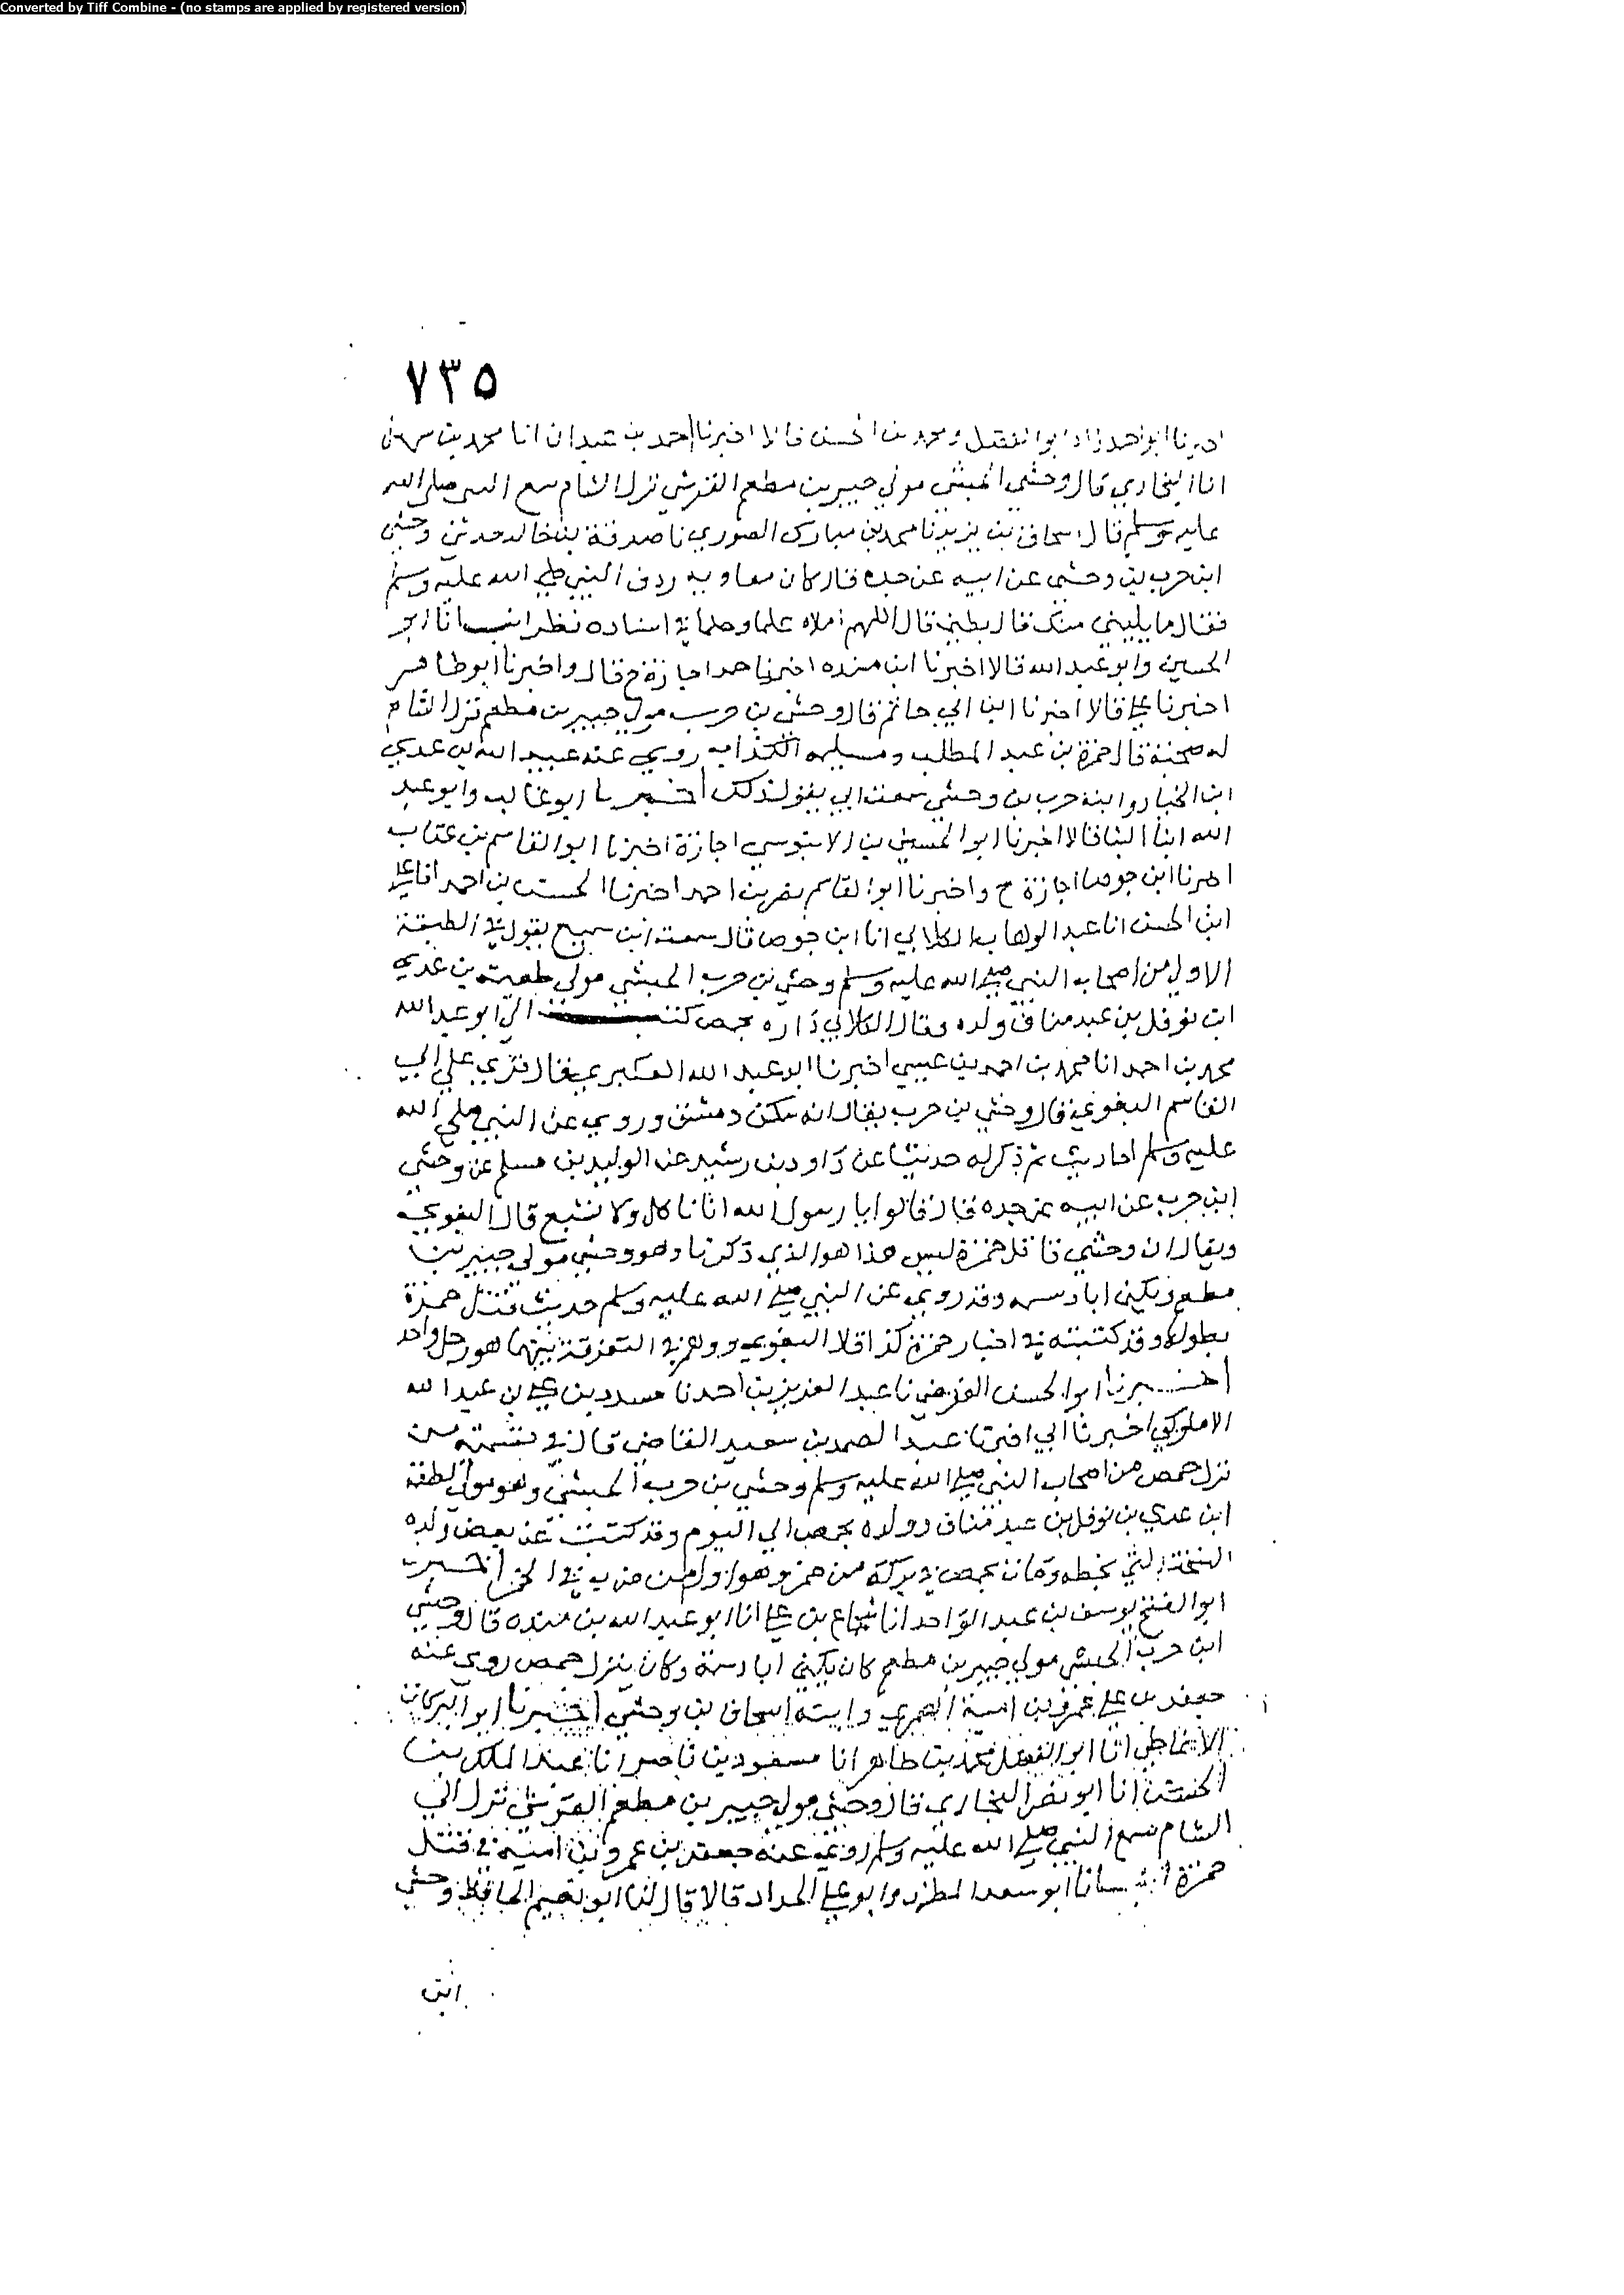 Converted by Tiff Combine - (no stamps are applied by registered version)
٧٣٥
ابو احمد زاد ابو الفضل ومحمد بن الحسن قالا اخبرنا احمد بن عبدان انا محمد بن سهل
انا البخاري قال وحشي الحبشي مولي جبير بن مطعم القرشي نزل الشام سمع النبي صلى الله
عليه وسلم قال اسحاق بن يزيد نا محمد بن مبارك الصوري نا صدقة بن خالد حدثني وحشي
ابن حرب بن وحشي عن ابيه عن جده قال كان معاويه ردف النبي صلى الله عليه وسلم
فقال ما يليني منك قال بطني قال اللهم املاه علما وحلما في اسناده نظر انبانا ابو
الحسين وابو عبد الله قالا اخبرنا ابن منده اخبرنا حمد اجازة ح قال واخبرنا ابو طاهر
اخبرنا علي قالا اخبرنا ابن ابي حاتم قال وحشي بن حرب مولي جبير بن مطعم نزل الشام
له صحبة قال حمزة بن عبد المطلب ومسيلمه الكذاب روي عنه عبيد الله بن عدي
ابن الخيار وابنه حرب بن وحشي سمعت ابي يقول ذلك اخبرنا ابو غالب وابو عبد
الله ابنا البنا قالا اخبرنا ابو الحسين بن الابنوسي اجازة اخبرنا ابو القاسم بن عتاب
اخبرنا ابن جوصا اجازة ح واخبرنا ابو القاسم نصر بن احمد اخبرنا الحسن بن احمد انا علي
ابن الحسن انا عبد الوهاب الكلابي انا ابن جوصا قال سمعت ابن سميع يقول في الطبقة
الاولي من اصحاب النبي صلى الله عليه وسلم وحشي بن حرب الحبشي مولي طعمة بن عدي
ابن نوفل بن عبد مناف ولده وقال الكلابي داره بحمص كتب الي ابو عبد الله
محمد بن احمد انا محمد بن احمد بن عيسي اخبرنا ابو عبد الله العكبري قال قري علي ابي
القاسم البغوي قال وحشي بن حرب يقال انه سكن دمشق وروي عن النبي صلى الله
عليه وسلم احاديث ثم ذكر له حديثا عن داود بن رشيد عن الوليد بن مسلم عن وحشي
ابن حرب عن ابيه عن جده قال قالوا يا رسول الله انا ناكل ولا نشبع قال البغوي
ويقال ان وحشي قاتل حمزة ليس هذا هو الذي ذكرنا وهو وحشي مولي جبير بن
مطعم ويكني ابا دسمه وقد روي عن النبي صلى الله عليه وسلم حديث قتل حمزة
بطوله وقد كتبته في اخبار حمزة كذا قال البغوي ووهم في التفرقة بينهما هو رجل واحد
اخبرنا ابو الحسن الفرضي نا عبد العزيز بن احمد نا مسدد بن علي بن عبد الله
الاملوكي اخبرنا ابي اخبرنا عبد الصمد بن سعيد القاضي قال في تسمية من
نزل حمص من اصحاب النبي صلى الله عليه وسلم وحشي بن حرب الحبشي وهو مولي لطعمة
ابن عدي بن نوفل بن عبد مناف وولده بحمص الي اليوم وقد كتبت عن بعض ولده
النسخة التي بخطه ومات بحمص في بركة من خمر وهو اول من ضرب في الخمر اخبرنا
ابو الفتح يوسف بن عبد الواحد انا شجاع بن علي انا ابو عبد الله بن منده قال وحشي
ابن حرب الحبشي مولي جبير بن مطعم كان يكني ابا دسمة وكان ينزل حمص روى عنه
جعفر بن عمرو بن امية الضمري وابنه اسحاق بن وحشي اخبرنا ابو البركات
الانماطي انا ابو الفضل محمد بن طاهر انا مسعود بن ناصر انا عبد الملك بن
الحسن انا ابو نصر البخاري قال وحشي مولي جبير بن مطعم القرشي نزل الي
الشام سمع النبي صلى الله عليه وسلم روي عنه جعفر بن عمرو بن امية في قتل
حمزة انبانا ابو سعد المطرز وابو علي الحداد قالا قال لنا ابو نعيم الحافظ وحشي
ابن